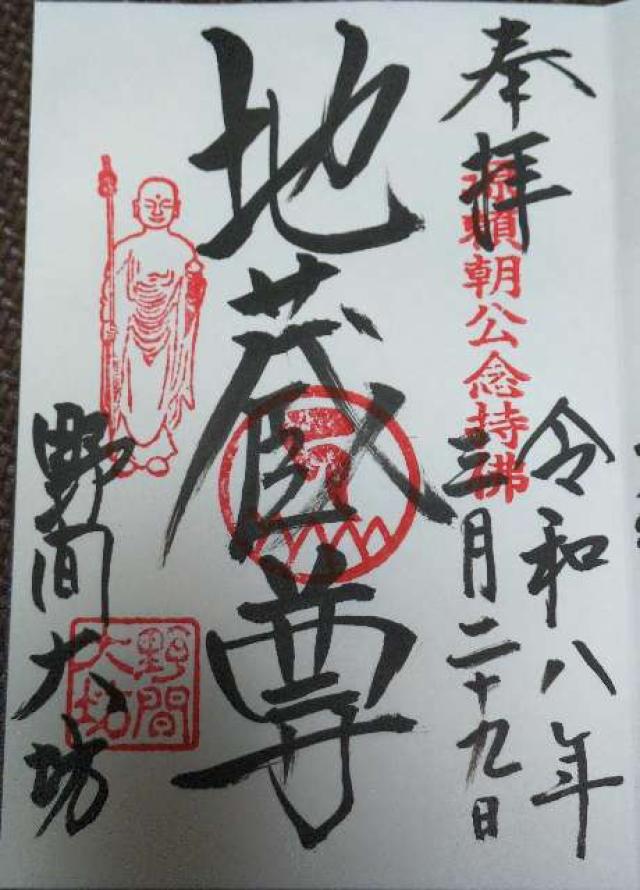 奉拝
源頼朝公念持佛
令和八年
三月二十九日
地蔵尊
野間大坊
野間
大坊